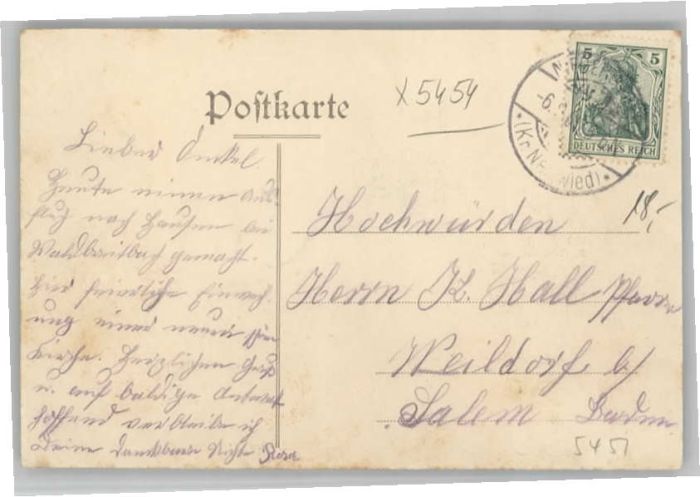 Postkarte
x 5454
5 5
DEUTSCHES REICH
-6.
(Kr. Neuwied)
18,-
Lieber Onkel.
Heute einen Aus-
flug nach Hausen bei
Waldbreitbach gemacht.
Hier feierliche Einweih-
ung einer neuen
Kirche. Herzlichen Gruß
u. auf baldige Antwort
hoffend verbleibe ich
Deine dankbare Nichte Rosa
Hochwürden
Herrn K. Hall Pfarrer
Weildorf b/
Salem Baden
5451